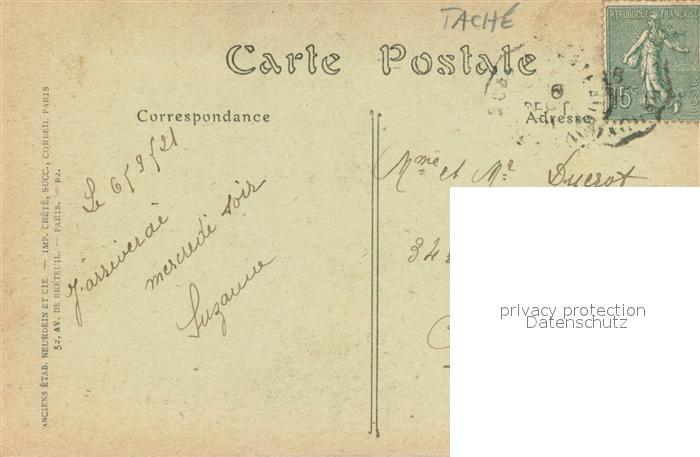 TACHÉ
RÉPUBLIQUE FRANÇAISE
15c
Carte Postale
Correspondance
Adresse
Le 6/9/21
J'arriverai
mercredi soir
Suzanne
Mme et Mr Ducrot
34
privacy protection
Datenschutz
ANCIENS ÉTAB. NEURDEIN ET CIE. — IMP. CRÉTÉ, SUCC., CORBEIL PARIS
52, AV. DE BRETEUIL. — PARIS. — B2.